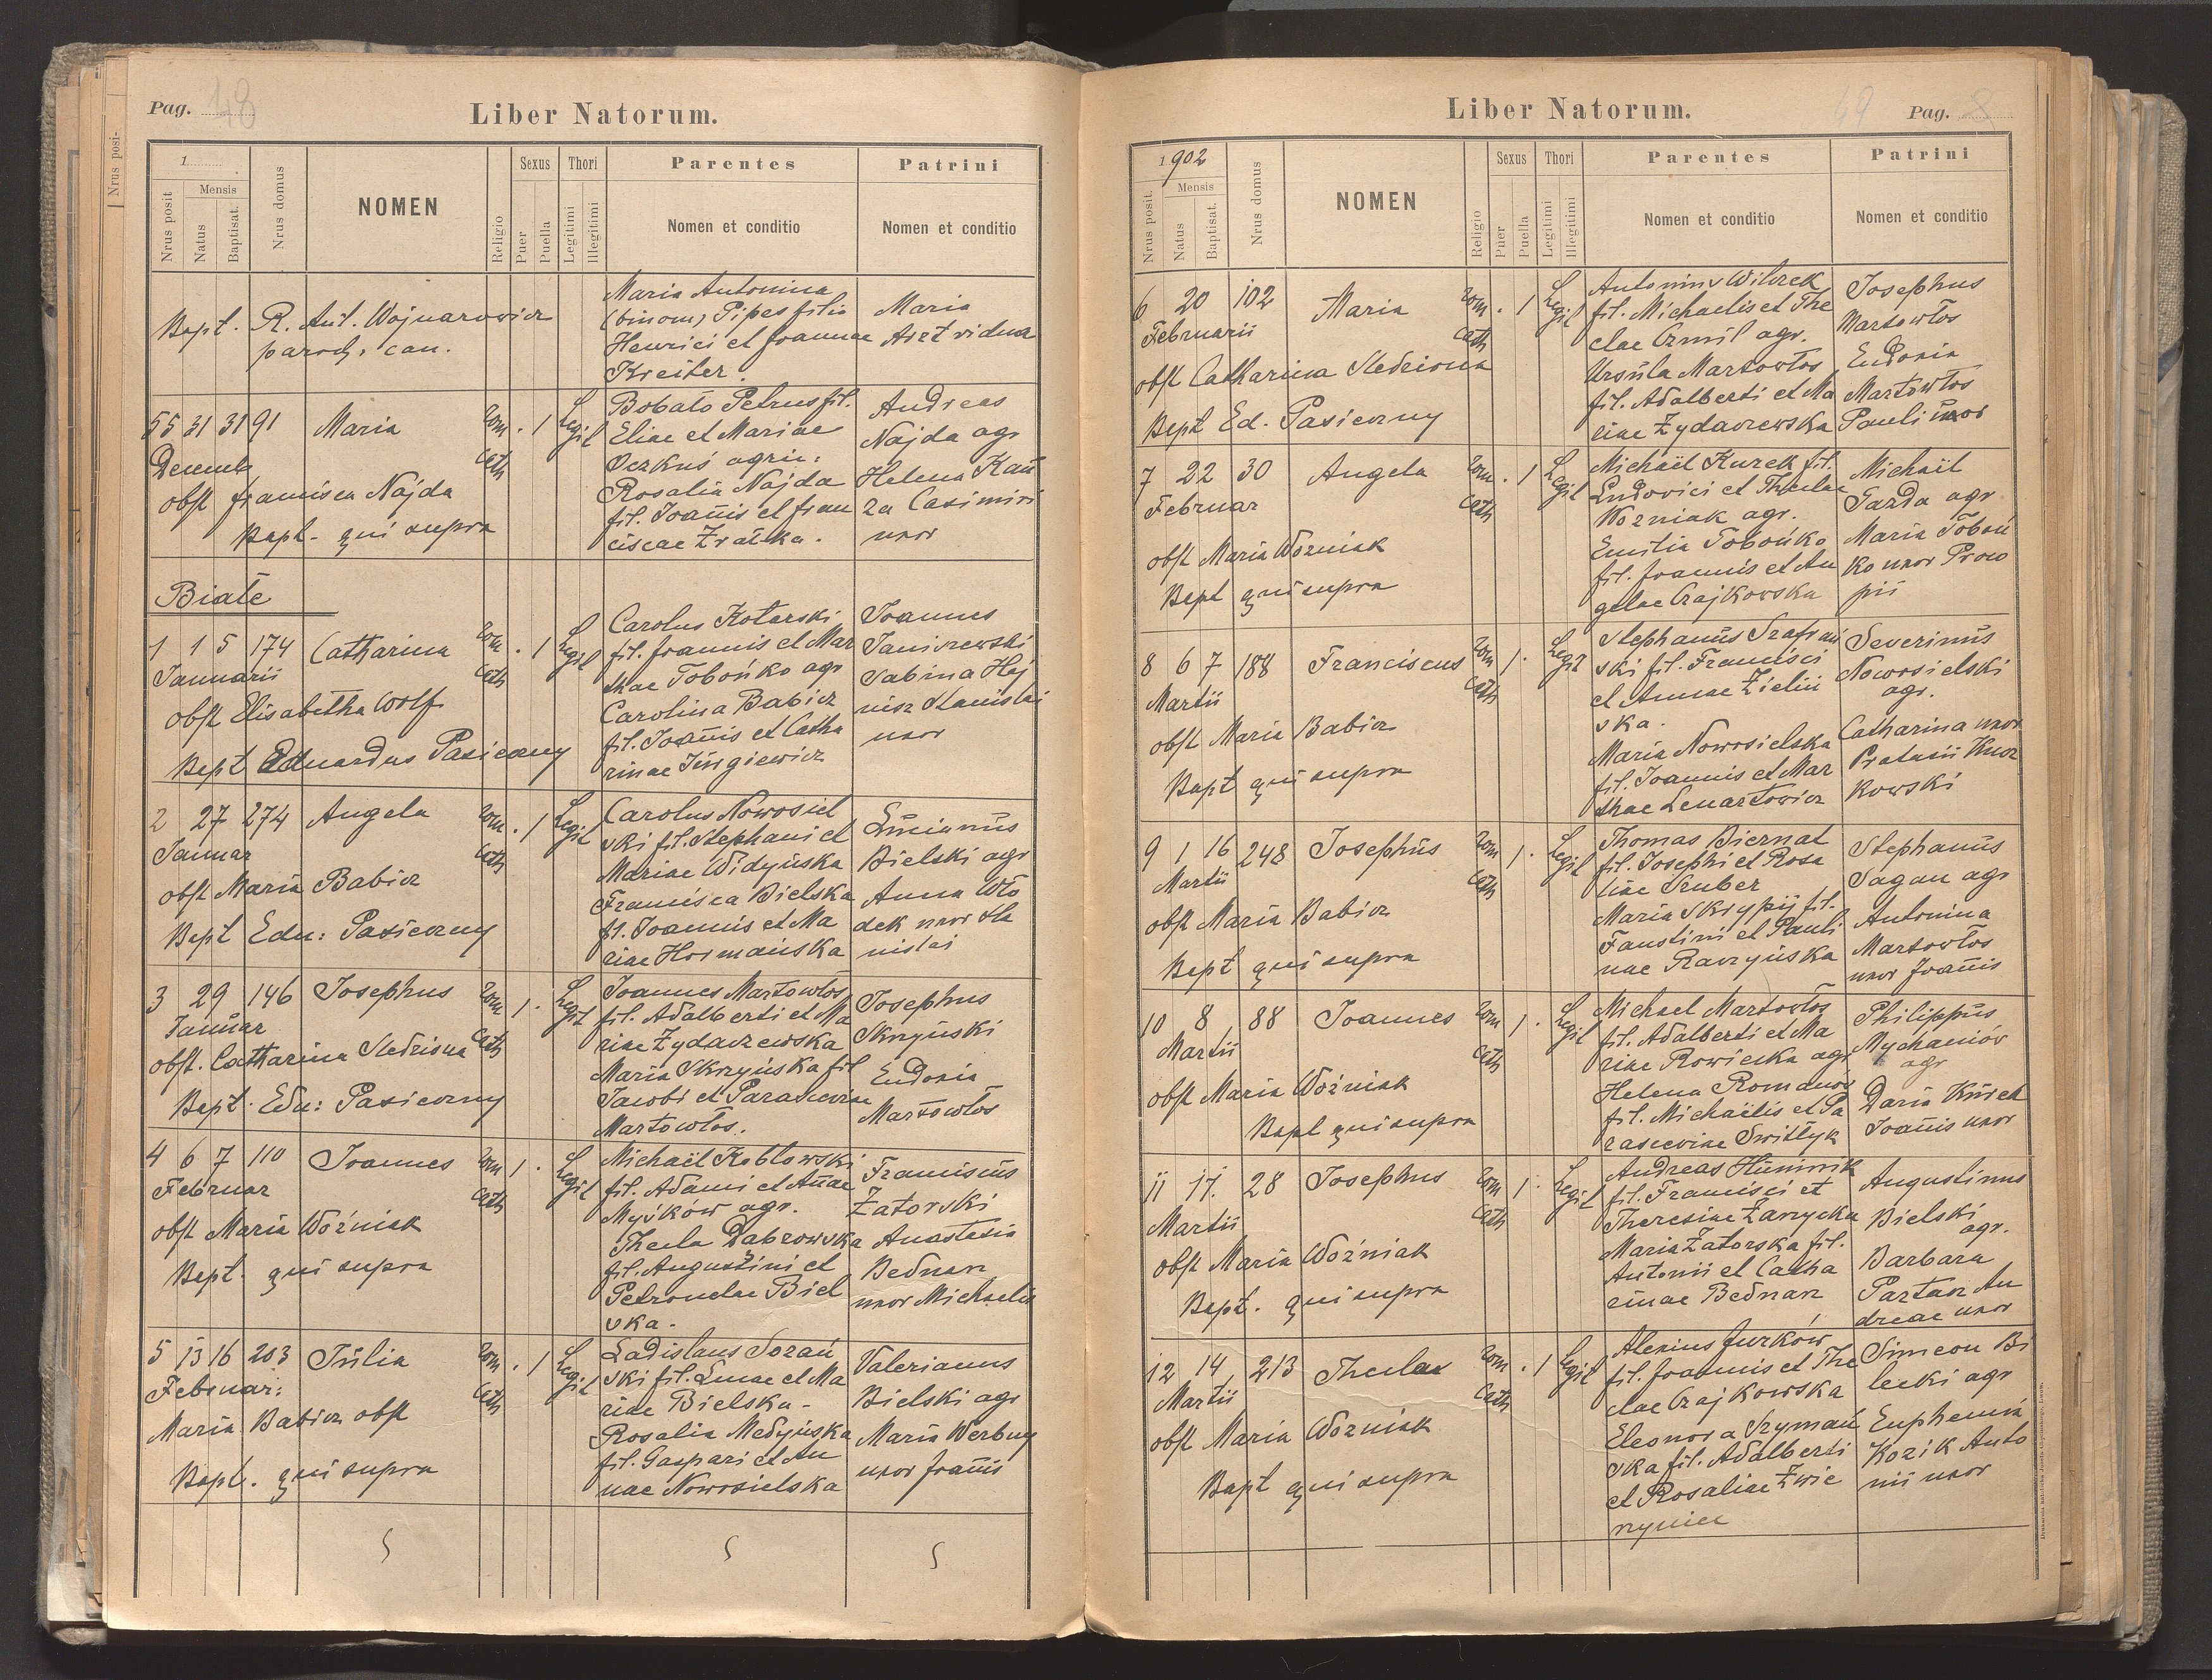 Pag. 48
Liber Natorum.
1
Nrus posit
Mensis
Natus
Baptisat.
Nrus domus
NOMEN
Religio
Sexus
Puer
Puella
Thori
Legitimi
Illegitimi
Parentes
Nomen et conditio
Patrini
Nomen et conditio
Bapt. R. Ant. Wojnarowicz
paroch. can.
Maria Antonina
(binom) Pipes filia
Henrici et Joannae
Kreiter.
Maria
Arzt vidua
55 31 31 91 Maria
Decemb
rom. cath
1
Legit
obst Francisca Najda
Bapt. qui supra
Bobato Petrus fil.
Eliae et Mariae
Oczkuś agric:
Rosalia Najda
fil. Joannis et Fran
ciscae Zratka.
Andreas
Najda agr
Helena Kan
za Casimiri
uxor
Białe
1 1 5 174 Catharina
Januarii
rom. cath
1
Legit
obst Elisabetha Wolf
Bapt Eduardus Pasieczny
Carolus Kotarski
fil. Joannis et Mar
thae Tobońko agr
Carolina Babicz
fil. Joannis et Catha
rinae
Joannes
Janiszewski
Sabina Haj
nisz Stanislai
uxor
2 27 274 Angela
Januar
rom. cath
1
Legit
obst Maria Babicz
Bapt Edu: Pasieczny
Carolus Nowosiel
ski fil. Stephani et
Mariae Widyńska
Francisca Bielska
fl. Joannis et Ma
riae Hormańska
Lucianus
Bielski agr
Anna Wło
dek uxor Sta
nislai
3 29 146 Josephus
Januar
rom. cath
1
Legit
obst. Catharina Stedziona
Bapt. Edu: Pasieczny
Joannes Martowłos
fil. Adalberti et Ma
riae Żydaczewska
Maria Skrzyńska fil
Jacobi et Parasceviae
Martowłos.
Josephus
Skrzyński
Eudoxia
Martowłos
4 6 7 110 Joannes
Februar
rom. cath
1
Legit
obst Maria Woźniak
Bapt. qui supra
Michaël Kobłowski
fil. Adami et Annae
Myśków agr.
Thecla Dąbrowska
fil. Augustini et
Petronelae Biel
ska.
Franciscus
Zatorski
Anastasia
Bednarz
uxor Michaelis
5 13 16 203 Julia
Februar:
rom. cath
1
Legit
Maria Babicz obst
Bapt. qui supra
Ladislaus Sozań
ski fil. Lucae et Ma
riae Bielska.
Rosalia Medyńska
fil. Gaspari et An
nae Nowosielska
Valerianus
Bielski agr
Maria Werbny
uxor Joannis
Liber Natorum.
49 Pag. 8
1902
Nrus posit.
Mensis
Natus
Baptisat.
Nrus domus
NOMEN
Religio
Sexus
Puer
Puella
Thori
Legitimi
Illegitimi
Parentes
Nomen et conditio
Patrini
Nomen et conditio
6 20 102 Maria
Februarii
rom. cath
1
Legit
obst Catharina Stedziona
Bapt Ed. Pasieczny
Antoninus Wilczek
fil. Michaelis et The
clae Czmil agr.
Ursula Martowłos
fil. Adalberti et Ma
riae Żydaczewska
Josephus
Martowłos
Eudoxia
Martowłos
Pauli uxor
7 22 30 Angela
Februar
rom. cath
1
Legit
obst Maria Woźniak
Bapt qui supra
Michaël Kurek fil.
Ludovici et Theclae
Wozniak agr.
Emilia Tobońko
fil. Joannis et An
gelae Czajkowska
Michaël
Gazda agr
Maria Toboń
ko uxor Proco
pii
8 6 7 188 Franciscus
Martii
rom. cath
1
Legit
obst Maria Babicz
Bapt qui supra
Stephanus Szafrań
ski fil. Francisci
et Annae Zieliń
ska.
Maria Nowosielska
fil. Joannis et Mar
thae Lenartowicz
Severinus
Nowosielski
agr.
Catharina uxor
Protasii Kucz
kowski
9 1 16 248 Josephus
Martii
rom. cath
1
Legit
obst Maria Babicz
Bapt qui supra
Thomas Biernat
fil. Josephi et Rosa
liae Szuber
Maria Skrypij fil.
Faustini et Pauli
nae Raczyńska
Stephanus
Sagan agr
Antonina
Martowłos
uxor Joannis
10 8 88 Joannes
Martii
rom. cath
1
Legit
obst Maria Woźniak
Bapt qui supra
Michael Martowłos
fil. Adalberti et Ma
riae Rowicka agr
Helena Romanów
fil. Michaëlis et Pa
rasceviae Świstlyk
Philippus
Mychaniów
agr
Daria Kurek
Joannis uxor
11 17. 28 Josephus
Martii
rom. cath
1
Legit
obst Maria Woźniak
Bapt. qui supra
Andreas Huminik
fil. Francisci et
Theresiae Zarzycka
Maria Zatorska fil.
Antonii et Catha
rinae Bednarz
Augustinus
Bielski
agr.
Barbara
Partacz An
dreae uxor
12 14 213 Thecla
Martii
rom. cath
1
Legit
obst Maria Wozniak
Bapt qui supra
Alexius Jurków
fil. Joannis et The
clae Czajkowska
Eleonora Szymań
ska fil. Adalberti
et Rosaliae Zwie
rzyniec
Simeon Bi
lecki agr
Euphemia
Kozik Anto
nii uxor